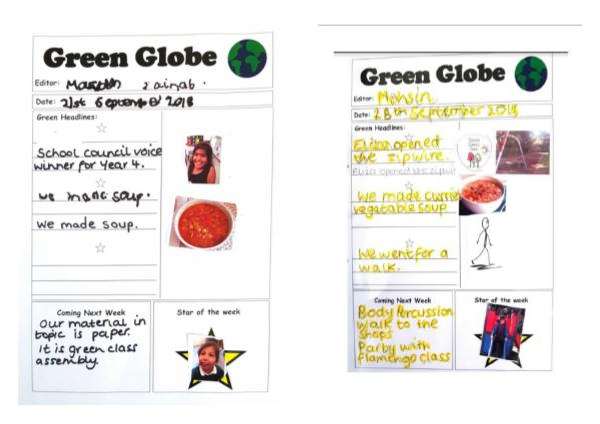 Green Globe
Editor: Zainab.
Date: 21st September 2018
Green Headlines:
School council voice
winner for Year 4.
we made soup.
We made soup.
Coming Next Week
Our material in
topic is paper.
It is green class
assembly.
Star of the week
Green Globe
Editor: Mohsin
Date: 28th September 2018
Green Headlines:
Eliza opened
the zipwire.
Eliza opened the zipwire
We made curried
vegetable soup
We went for a
walk.
Coming Next Week
Body Percussion
walk to the
shops
Party with
flamingo class
Star of the week